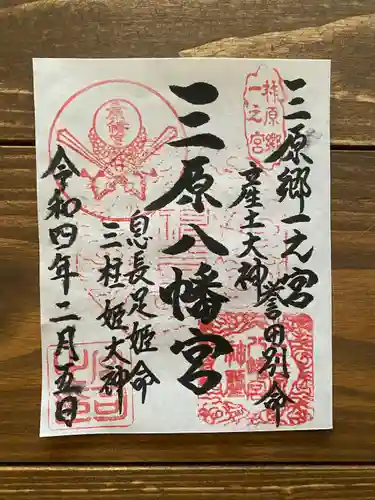 三原郷一之宮
三原郷
一之宮
産土大神
誉田別命
三原八幡宮
息長足姫命
三柱姫大神
令和四年二月五日